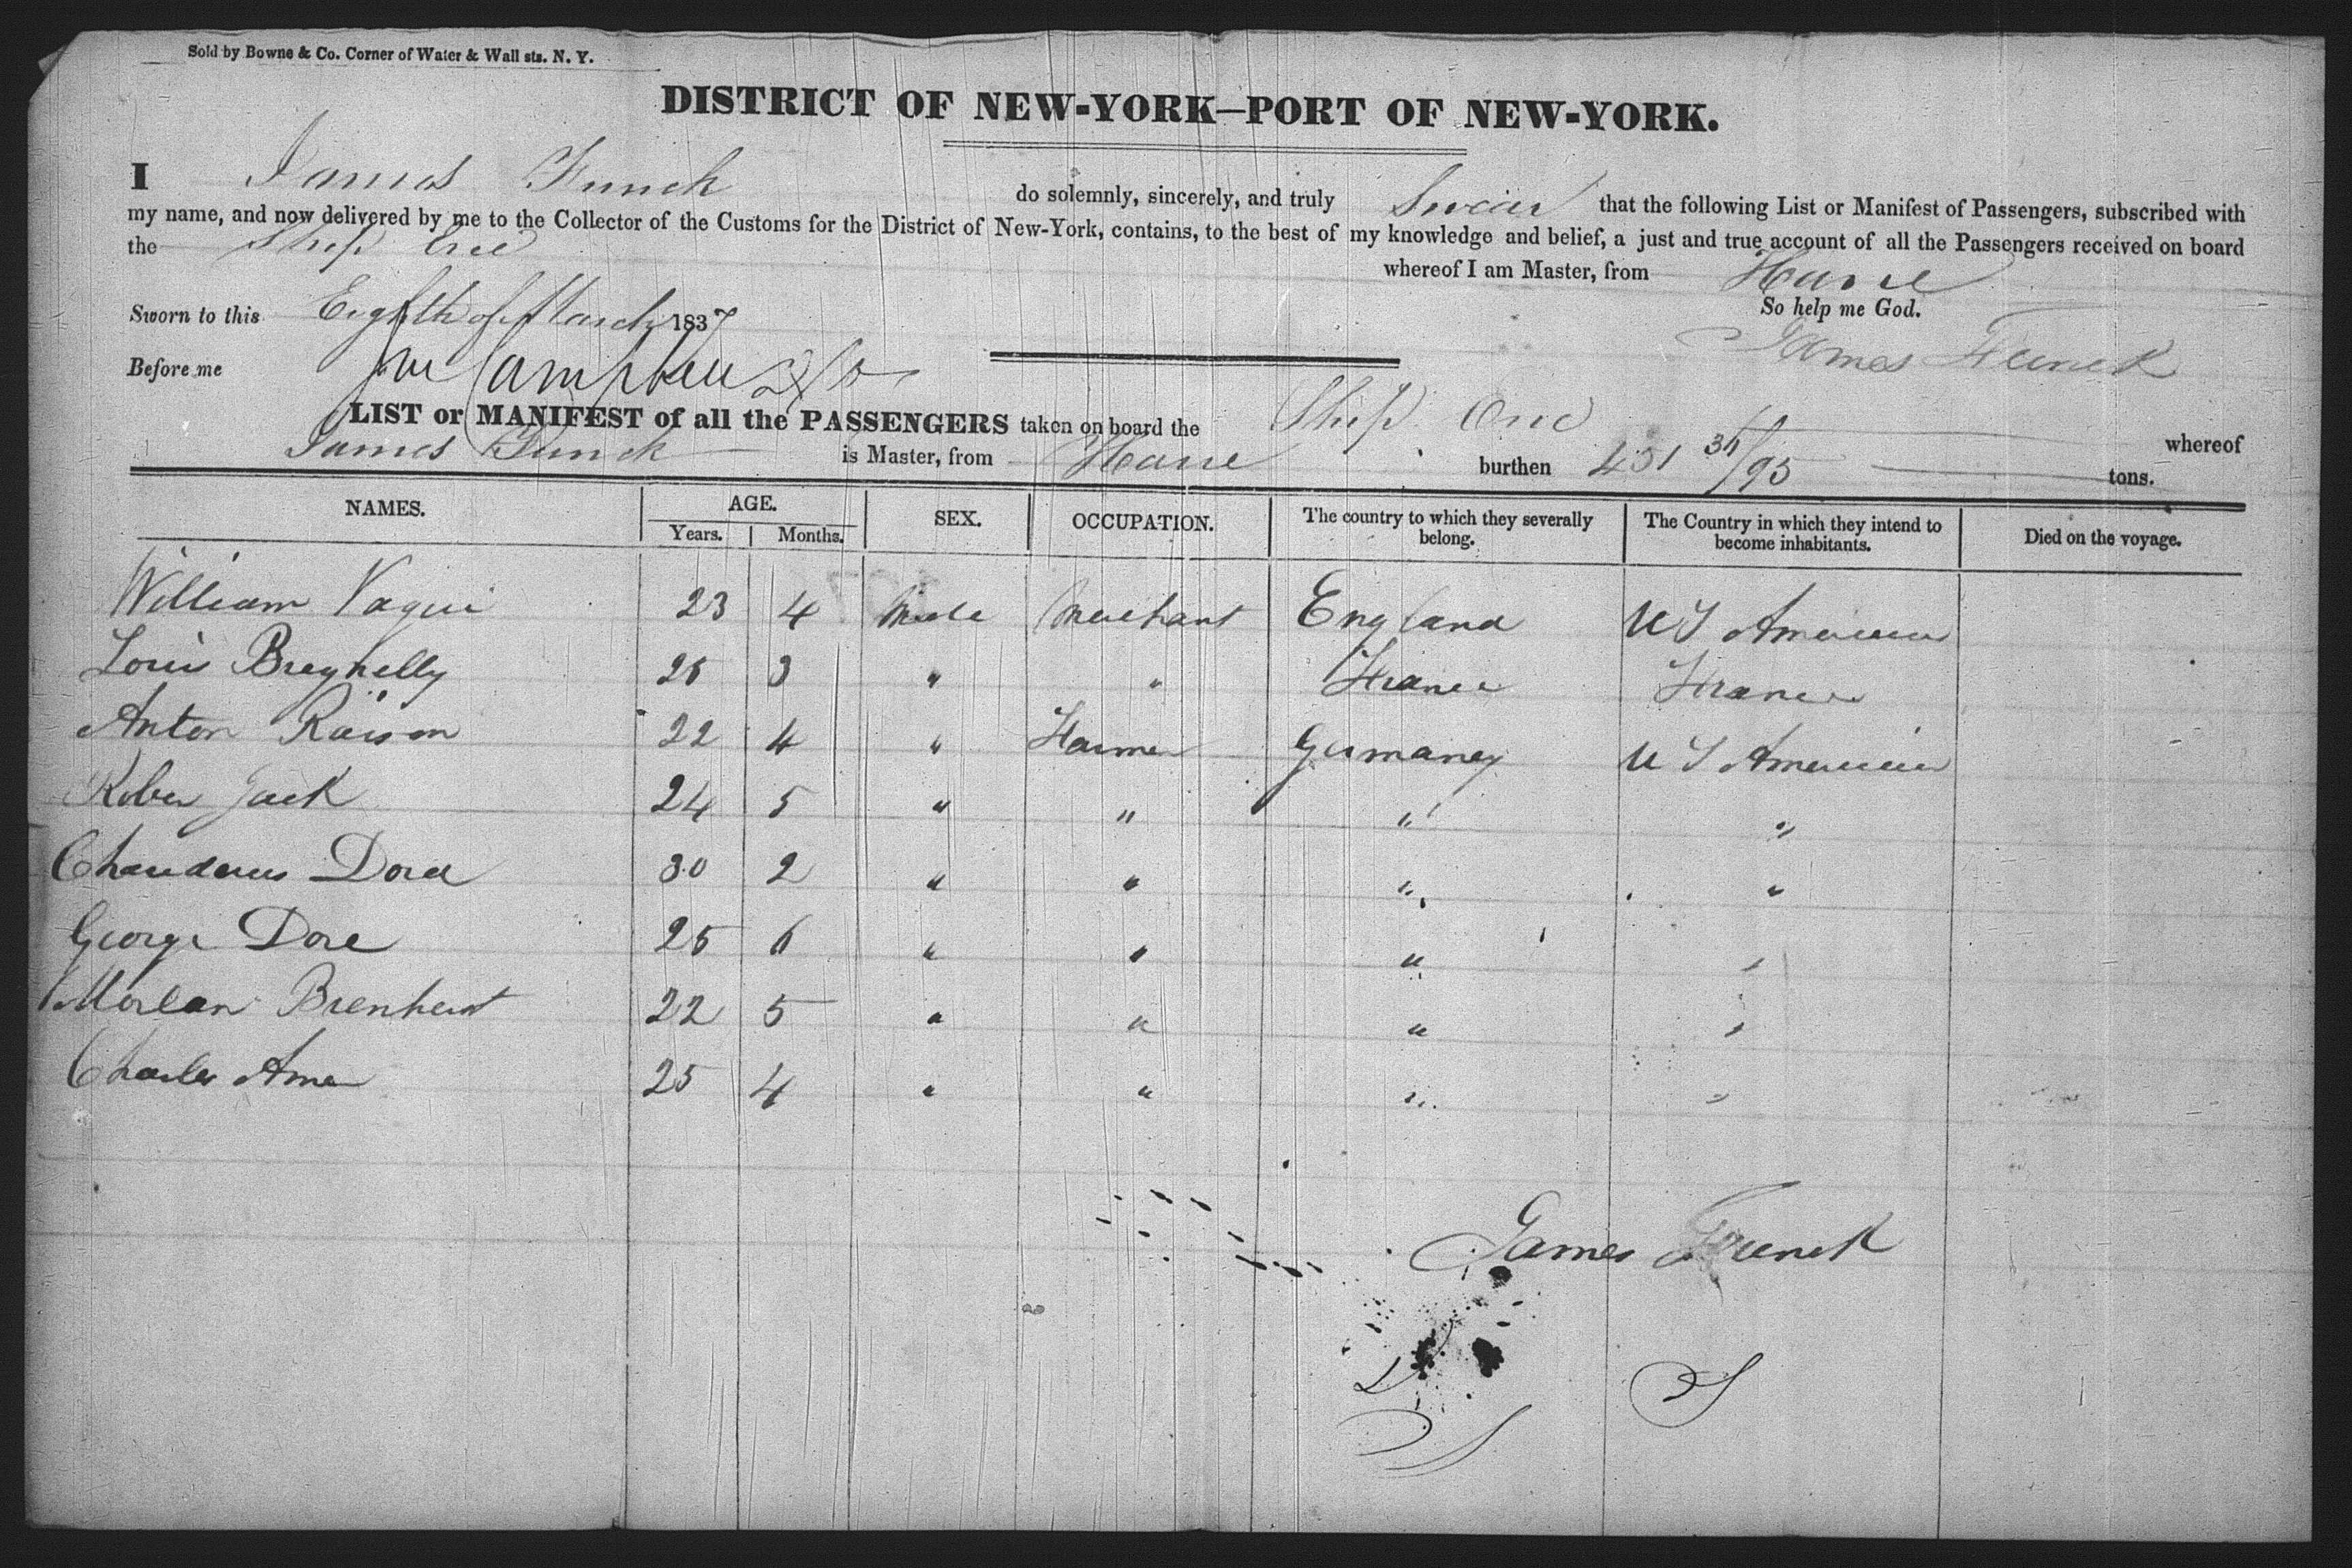 Sold by Bowne & Co. Corner of Water & Wall sts. N. Y.
DISTRICT OF NEW-YORK—PORT OF NEW-YORK.
I James Funck do solemnly, sincerely, and truly Swear that the following List or Manifest of Passengers, subscribed with
my name, and now delivered by me to the Collector of the Customs for the District of New-York, contains, to the best of my knowledge and belief, a just and true account of all the Passengers received on board
the Ship whereof I am Master, from Havre
So help me God.
Sworn to this Eighth of March 1837
James Funck
Before me Campbell
LIST or MANIFEST of all the PASSENGERS taken on board the Ship whereof
James Funck is Master, from Havre burthen 451 /95 tons.
NAMES. AGE. SEX. OCCUPATION. The country to which they severally belong. The Country in which they intend to become inhabitants. Died on the voyage.
Years. Months.
William Vaqui 23 4 Male Merchant England U S America
Louis 25 3 " " France France
Anton 22 4 " Farmer Germaney U S America
Jack 24 5 " " " "
30 2 " " " "
George Dore 25 6 " " " "
22 5 " " " "
Charles 25 4 " " " "
James Funck